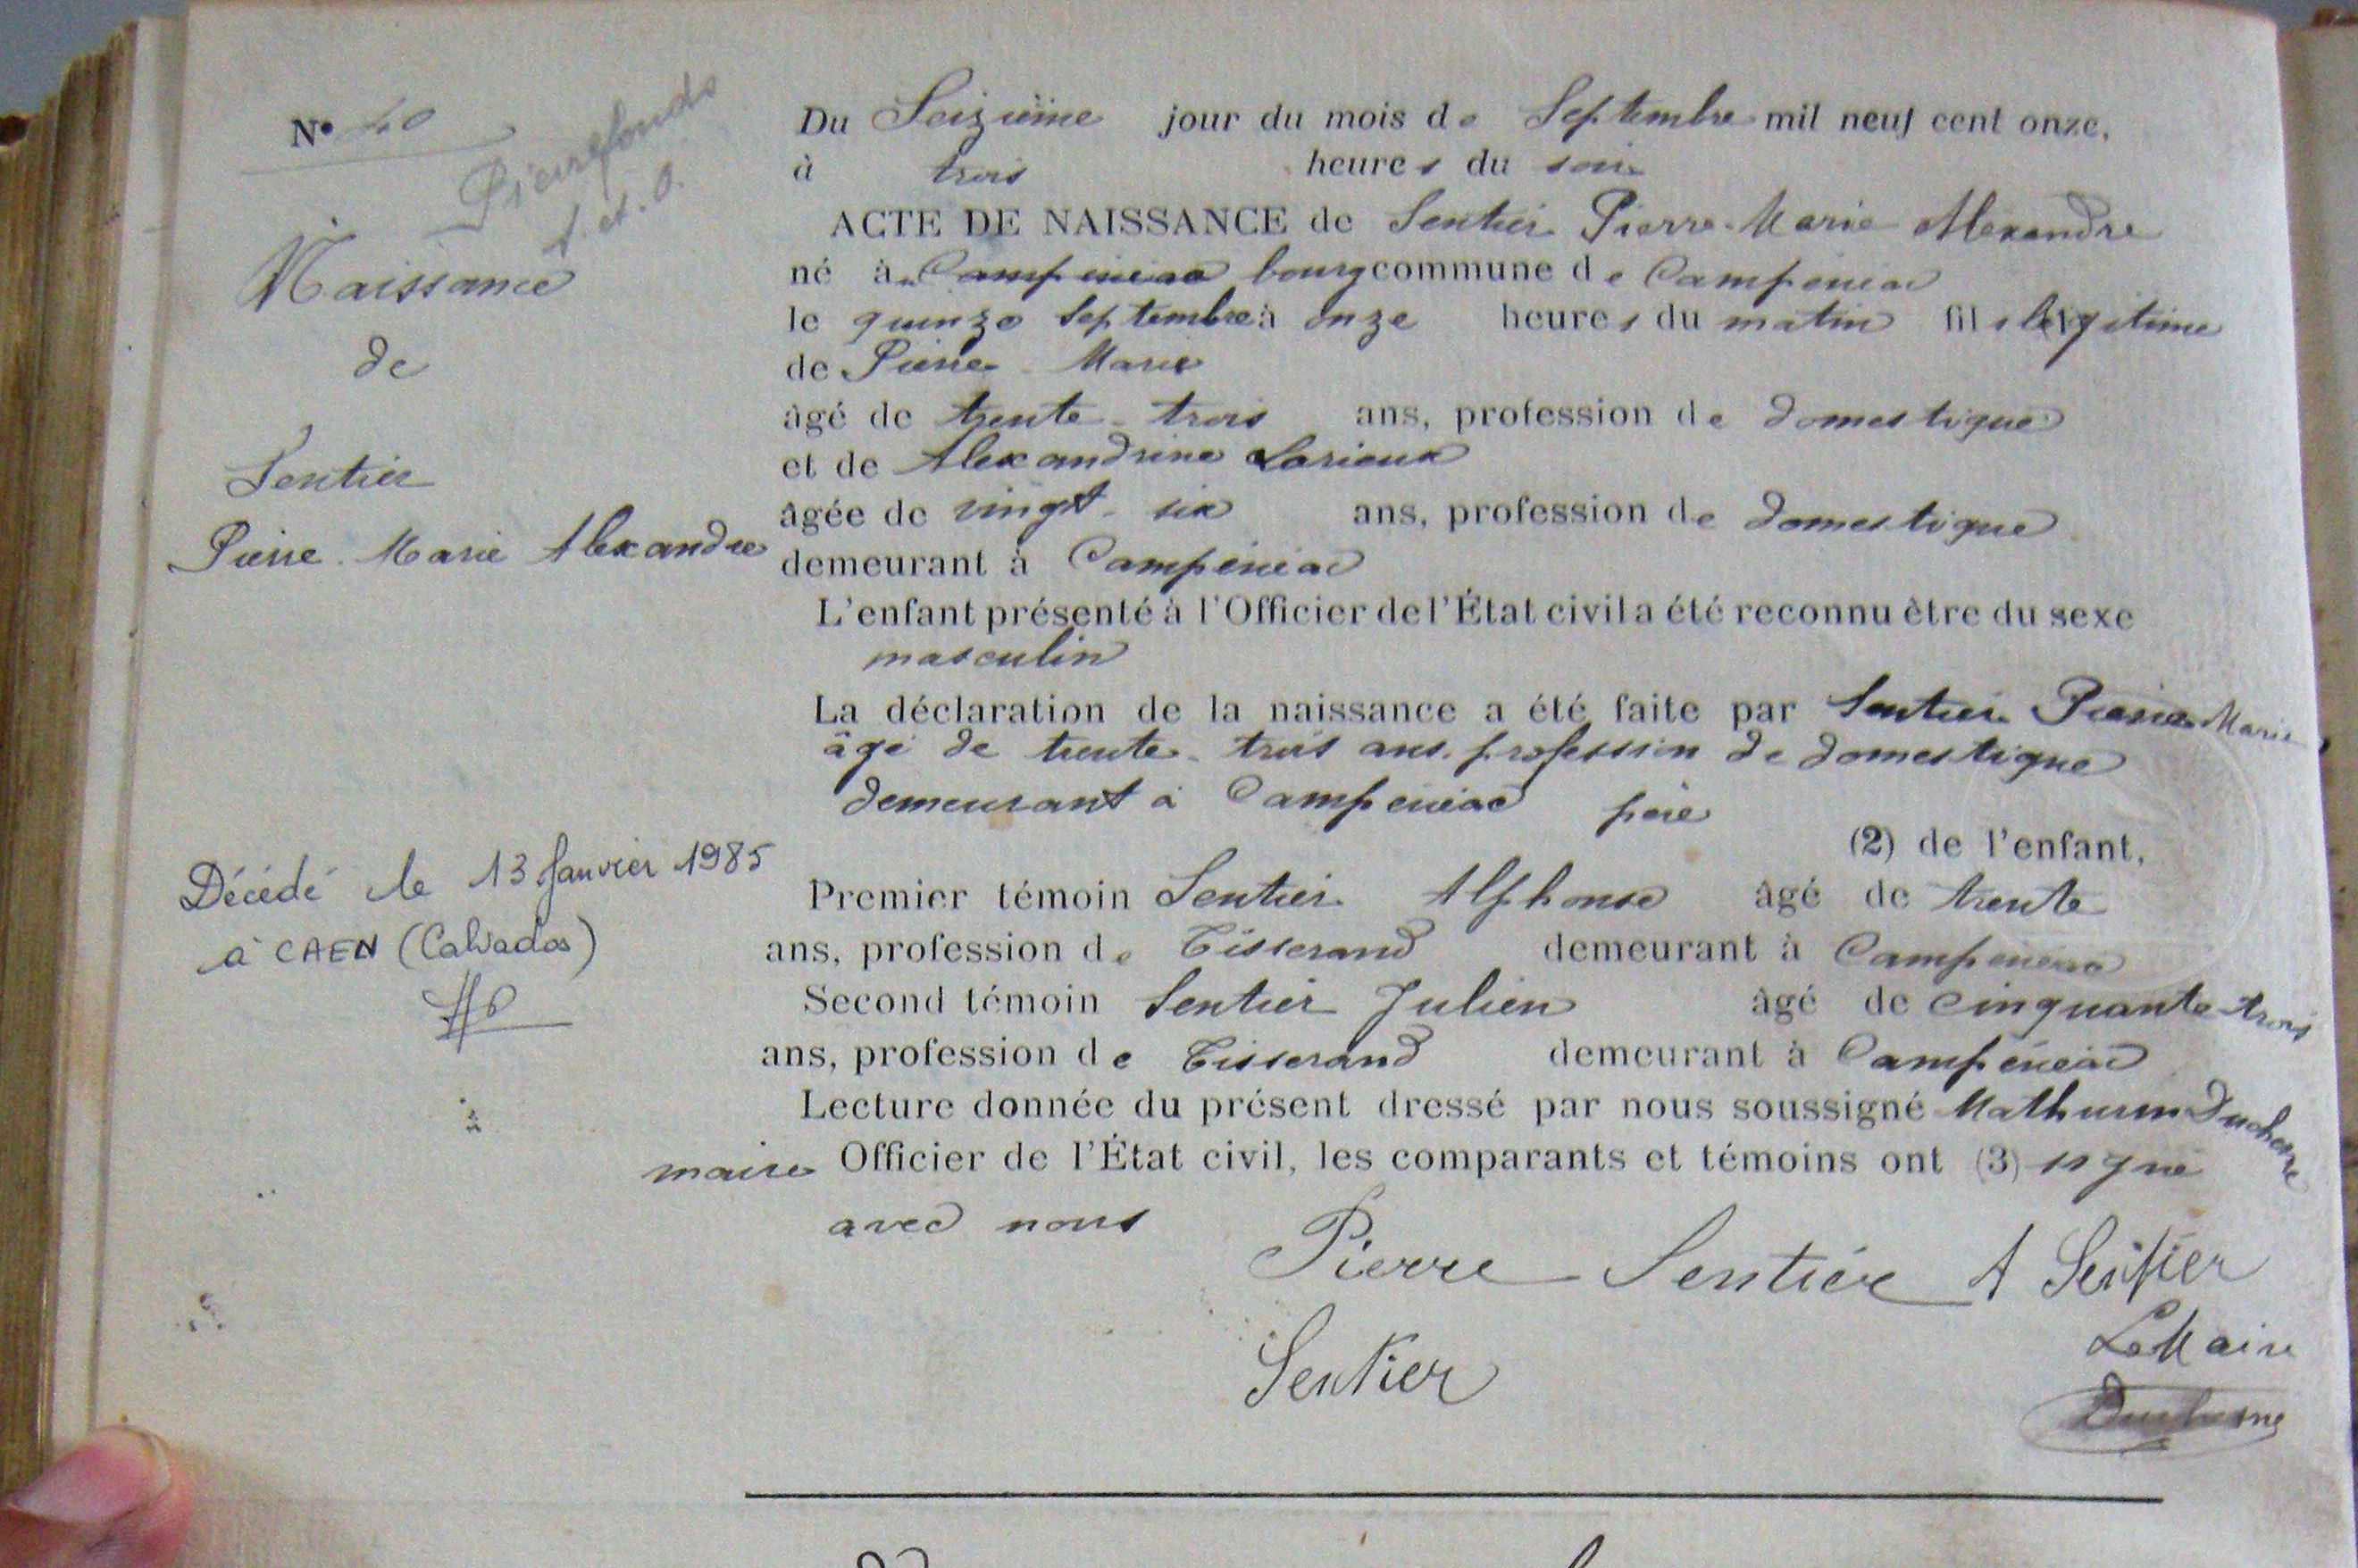 N° 40
Pierrefonds
S. et. O.
Naissance
de
Sentier
Pierre Marie Alexandre
Décédé le 13 Janvier 1985
à CAEN (Calvados)
Du Seizième jour du mois de Septembre mil neuf cent onze,
à trois heures du soir
ACTE DE NAISSANCE de Sentier Pierre Marie Alexandre
né à Campénéac bourg commune de Campénéac
le quinze Septembre à onze heures du matin fils légitime
de Pierre Marie
âgé de trente-trois ans, profession de domestique
et de Alexandrine Lorieux
âgée de vingt-six ans, profession de domestique
demeurant à Campénéac
L'enfant présenté à l'Officier de l'État civil a été reconnu être du sexe
masculin
La déclaration de la naissance a été faite par Sentier Pierre Marie
âgé de trente-trois ans, profession de domestique
demeurant à Campénéac père
(2) de l'enfant,
Premier témoin Sentier Alphonse âgé de trente
ans, profession de Tisserand demeurant à Campénéac
Second témoin Sentier Julien âgé de cinquante-trois
ans, profession de Tisserand demeurant à Campénéac
Lecture donnée du présent dressé par nous soussigné Mathurin Duchesne
maire Officier de l'État civil, les comparants et témoins ont (3) signé
avec nous
Pierre Sentier A Sentier
Le Maire
Sentier
Duchesne